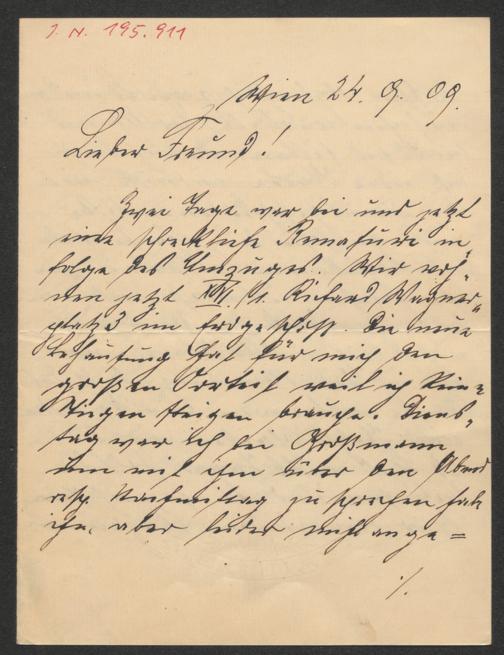 I. N. 195.911
Wien 24. 9. 09.
Lieber Freund!
Zwei Tage war bei uns jetzt
eine schreckliche Remasuri in-
folge des Umzuges. Wir woh-
nen jetzt XVI, 1. Richard Wagner-
platz 3 im Erdgeschoß. Die neue
Behausung hat für mich den
großen Vorteil weil ich keine
Stiegen steigen brauche. Diens-
tag war ich bei Großmann
um mit ihm über den Abend
resp. Nachmittag zu sprechen hab
ihn, aber leider nicht ange=
./.